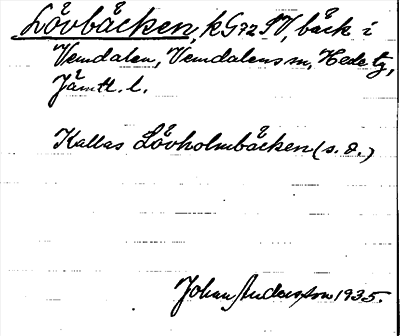 Lövbäcken, kG72 SV, bäck i
Vemdalen, Vemdalens sn, Hede tg,
Jämtl. l.
Kallas Lövholmbäcken (s. d.)
Johan Anderson 1935.